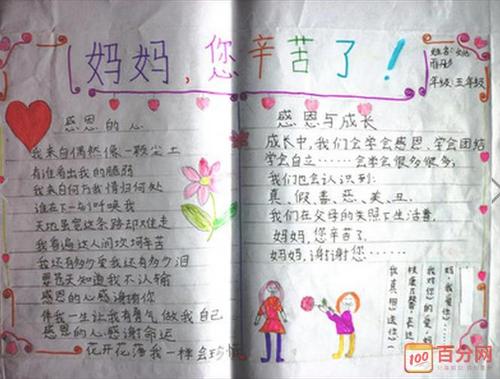 妈妈,您辛苦了!
姓名:姚
年级:五年级
感恩的心
我来自偶然像一颗尘土
有谁看出我的脆弱
我来自何方我情归何处
谁在下一刻呼唤我
天地虽宽这条路却难走
我看遍这人间坎坷辛苦
我还有多少爱我还有多少泪
要苍天知道我不认输
感恩的心感谢有你
伴我一生让我有勇气做我自己
感恩的心感谢命运
花开花落我一样会珍惜
感恩与成长
成长中,我们会学会感恩、学会团结
学会自立……会学会很多很多;
我们也会认识到:
真、假、善、恶、美、丑。
我们在父母的关照下生活着,
妈妈,您辛苦了。
妈妈,谢谢您……
妈,我爱您
我对您的爱,
我真想送您
100
百分网